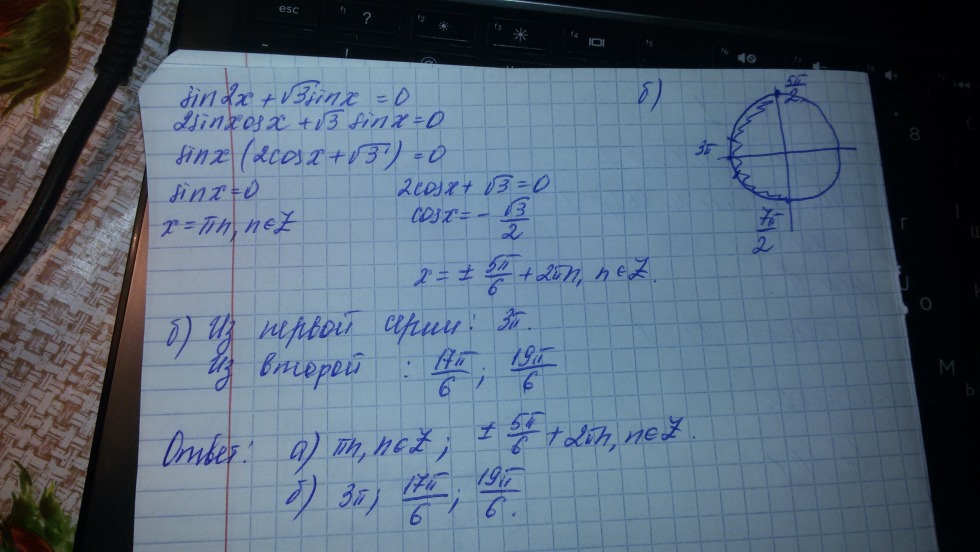 esc
f1 ?
f2
f3
f4
f5
f6
sin2x + √3 sinx = 0
2sinxcosx + √3 sinx = 0
sinx (2cosx + √3) = 0
sinx = 0 2cosx + √3 = 0
x = πn, n∈Z cosx = - √3/2
x = ± 5π/6 + 2πn, n∈Z.
б)
5π/2
3π
7π/2
б) Из первой серии: 3π.
Из второй : 17π/6; 19π/6
Ответ: а) πn, n∈Z; ± 5π/6 + 2πn, n∈Z.
б) 3π; 17π/6; 19π/6.
8
Г
Ш
О
М
Ь